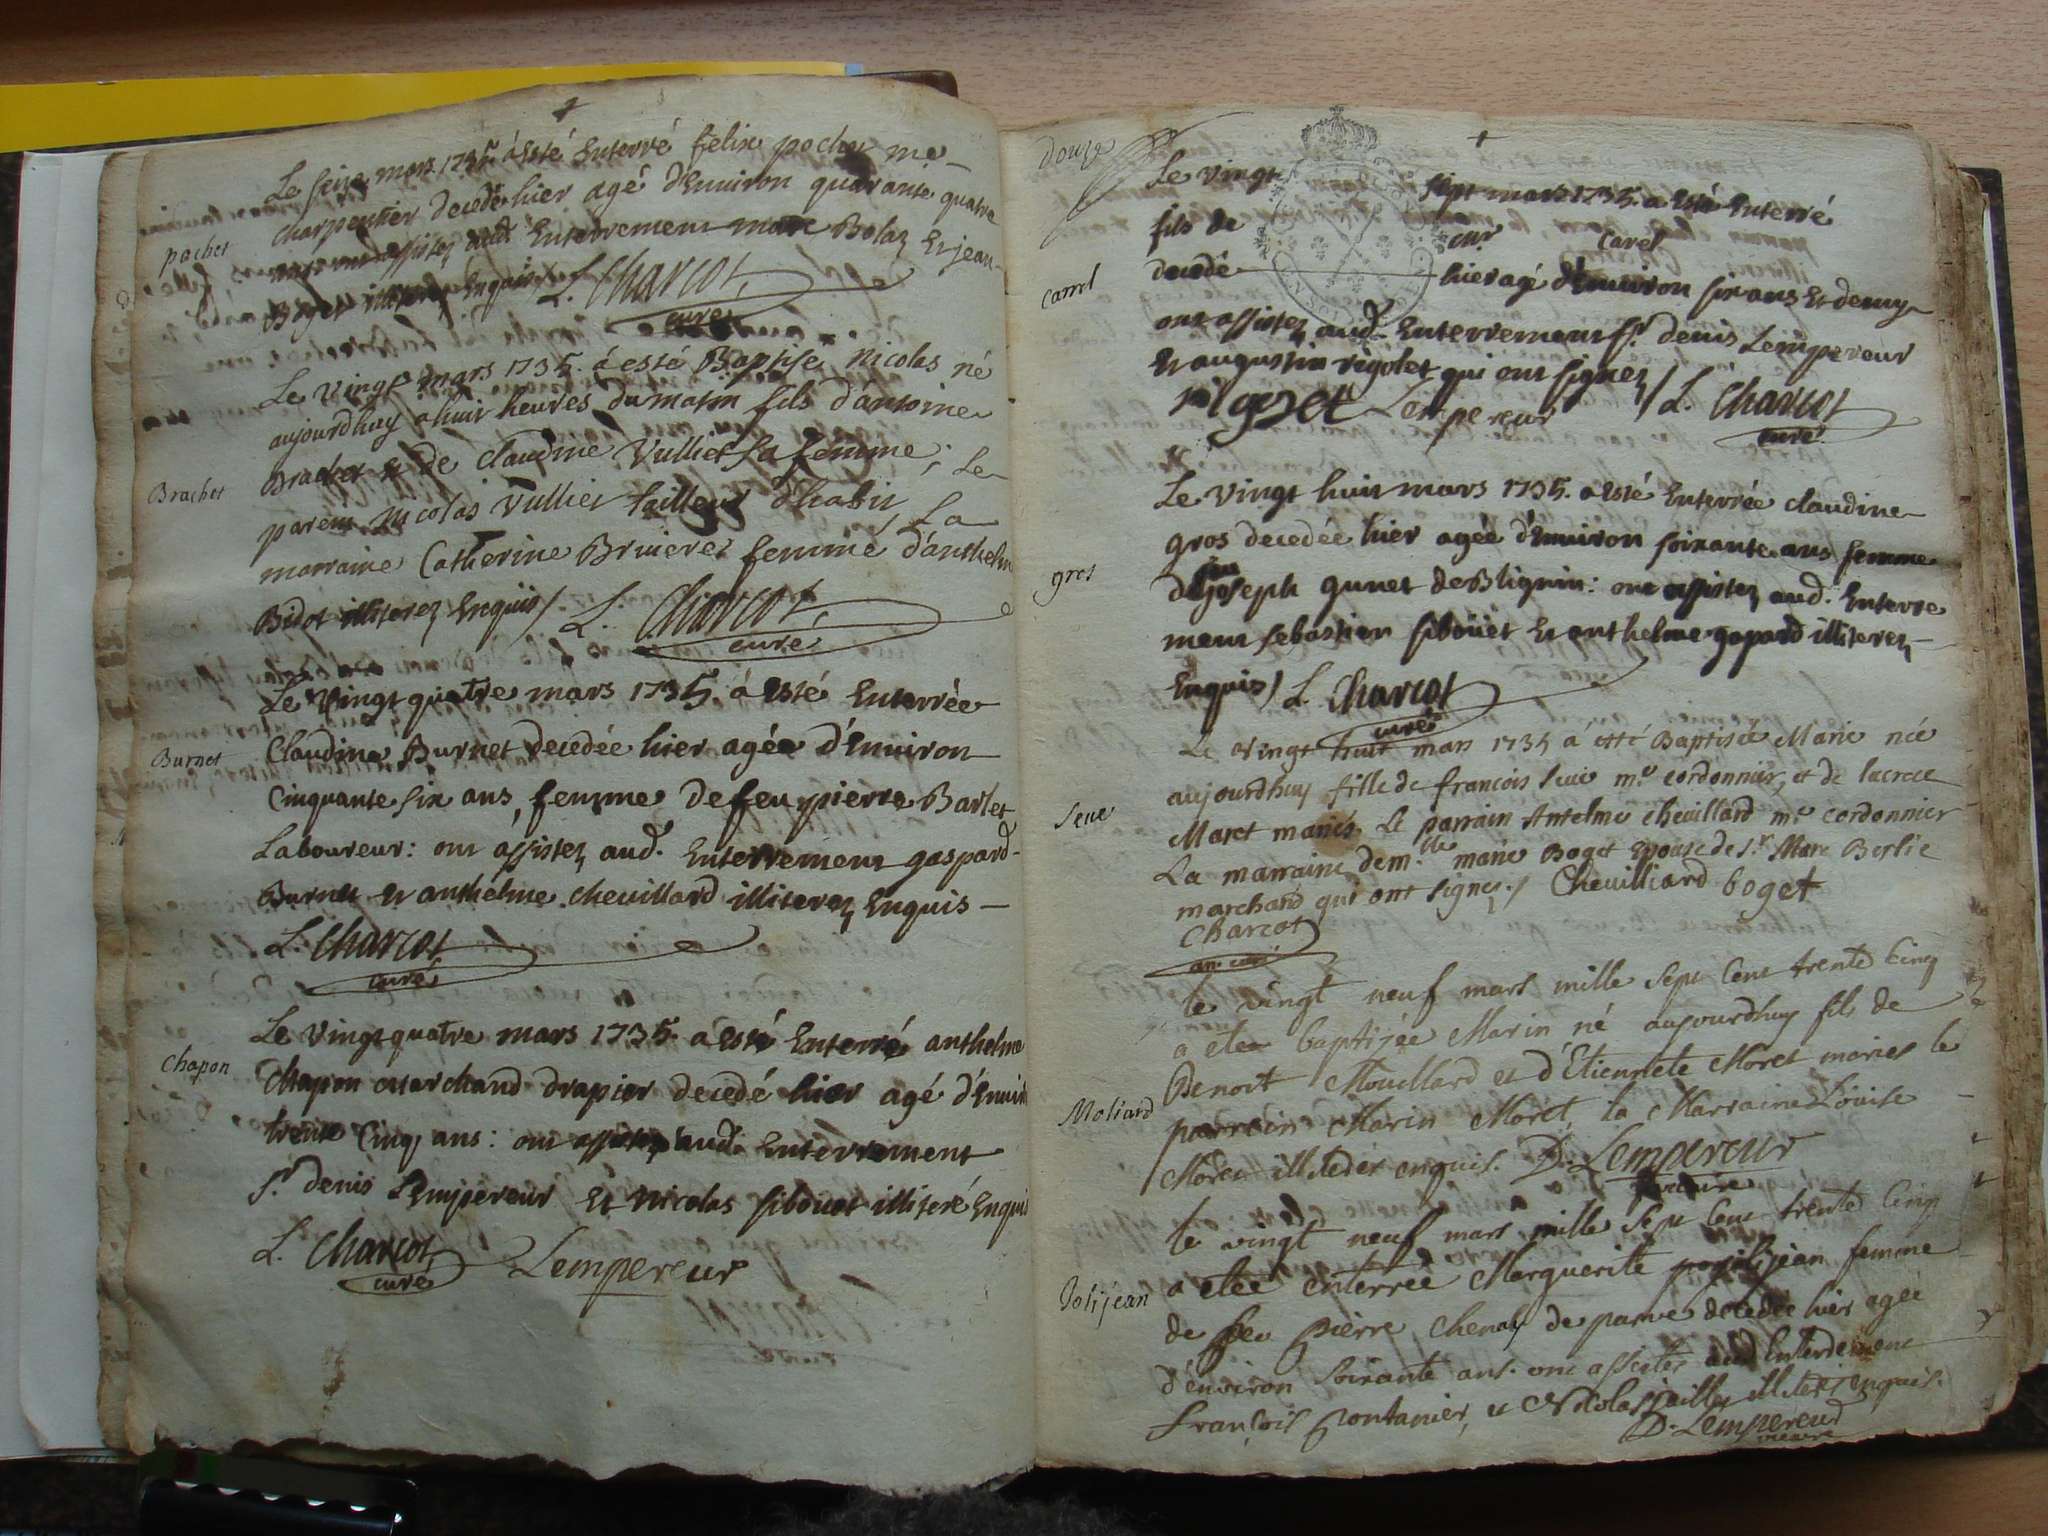 Le seize mars 1735. à esté Enterré felix pochet me
charpentier decedé hier agé d'Enuiron quarante quatre
pochet
ans: ont assistez aud. Enterrement Bolaz Et jean
Boget illiterez Enquis L. Charcot
curé
Le vingt mars 1735. à esté Baptise nicolas né
aujourdhuy a huit heures du matin fils d'antoine
Brachet
Brachet et de claudine Vulliet sa femme; Le
parein Nicolas Vulliet tailleur d'habit, La
marraine Catherine Bruiere femme d'anthelme
Bidot illiterez Enquis/ L. Charcot,
curé
Le Vingt quatre mars 1735 á esté Enterrée
Burnet
Claudine Burnet decedée hier agée d'Enuiron
Cinquante six ans, femme de feu pierre Barlet
Laboureur: ont assistez aud. Enterrement gaspard
Burnet et anthelme chevillard illiterez Enquis
L. Charcot
curé
Le vingt quatre mars 1735. a esté Enterré anthelme
Chapon
Chapon marchand drapier decedé hier agé d'Enuiron
trente Cinq ans: ont assistez aud. Enterrement
Sr. denis L'Empereur Et nicolas sibouet illiteré Enquis
L. Charcot Lempereur
curé
douze
Le vingt sept mars 1735. a esté Enterré
fils de Carel
Carrel
decedé hier agé d'Enuiron six ans Et demy
ont assistez aud. Enterrement Sr. denis Lempereur
Et augustin rigolet qui ont signez/ L. Charcot
rigolet Lempereur curé
Le vingt huit mars 1735. a esté Enterrée claudine
gros decedée hier agée d'Enuiron soixante ans femme
gros
de feu joseph gunet de Blignin: ont assistez aud. Enterre
ment sebastien sibouët Et anthelme gopard illiterez
Enquis/ L. Charcot
curé
Le vingt huit mars 1735 a esté Baptisée Marie née
aujourdhuy fille de francois Seue me. cordonnier, et de lucrece
Seue
Maret mariés. Le parrain Antelme chevillard me. cordonnier
La marraine demlle. marie Boget Epouse de Sr. Marc Berlie
marchand qui ont signez./ Chevilliard boget
Charcot
an. curé
le vingt neuf mars mille sept cent trente cinq
a étée baptisée Marin né aujourdhuy fils de
Benoit Mouillard et d'Etiennete Moret mariés le
Moliard
parrein Marin Moret, la Marraine Louise
Moret illiteres enquis. D. Lempereur
vicaire
le vingt neuf mars mille sept cent trente cinq
a étée enterrée Marguerite jean femme
Jolijean
de feu pierre Chenay de parve decedée hier agée
d'environ soixante ans. ont assistez aud Enterrement
françois fontanier, et Nicolas jailler illiteres enquis.
D. Lempereur
vicaire